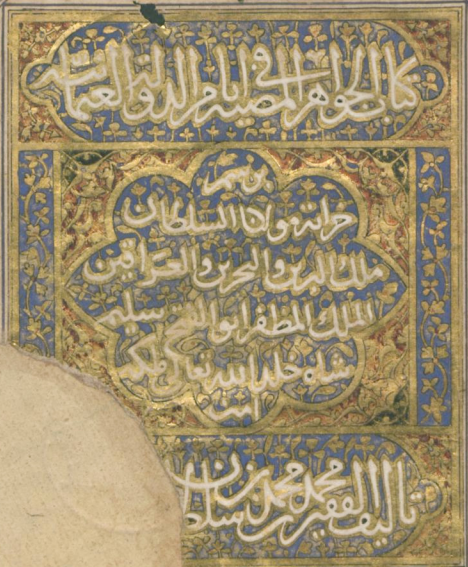 كتاب الجواهر المضية في ايام الدولة العثمانية
برسم
خزانة مولانا السلطان
ملك البرين والبحرين والعراقين
الملك المظفر ابو الفتح سليم
شاه خلد الله تعالى ملكه
امين
تاليف الفقير محمد بن محمد بن سلطان